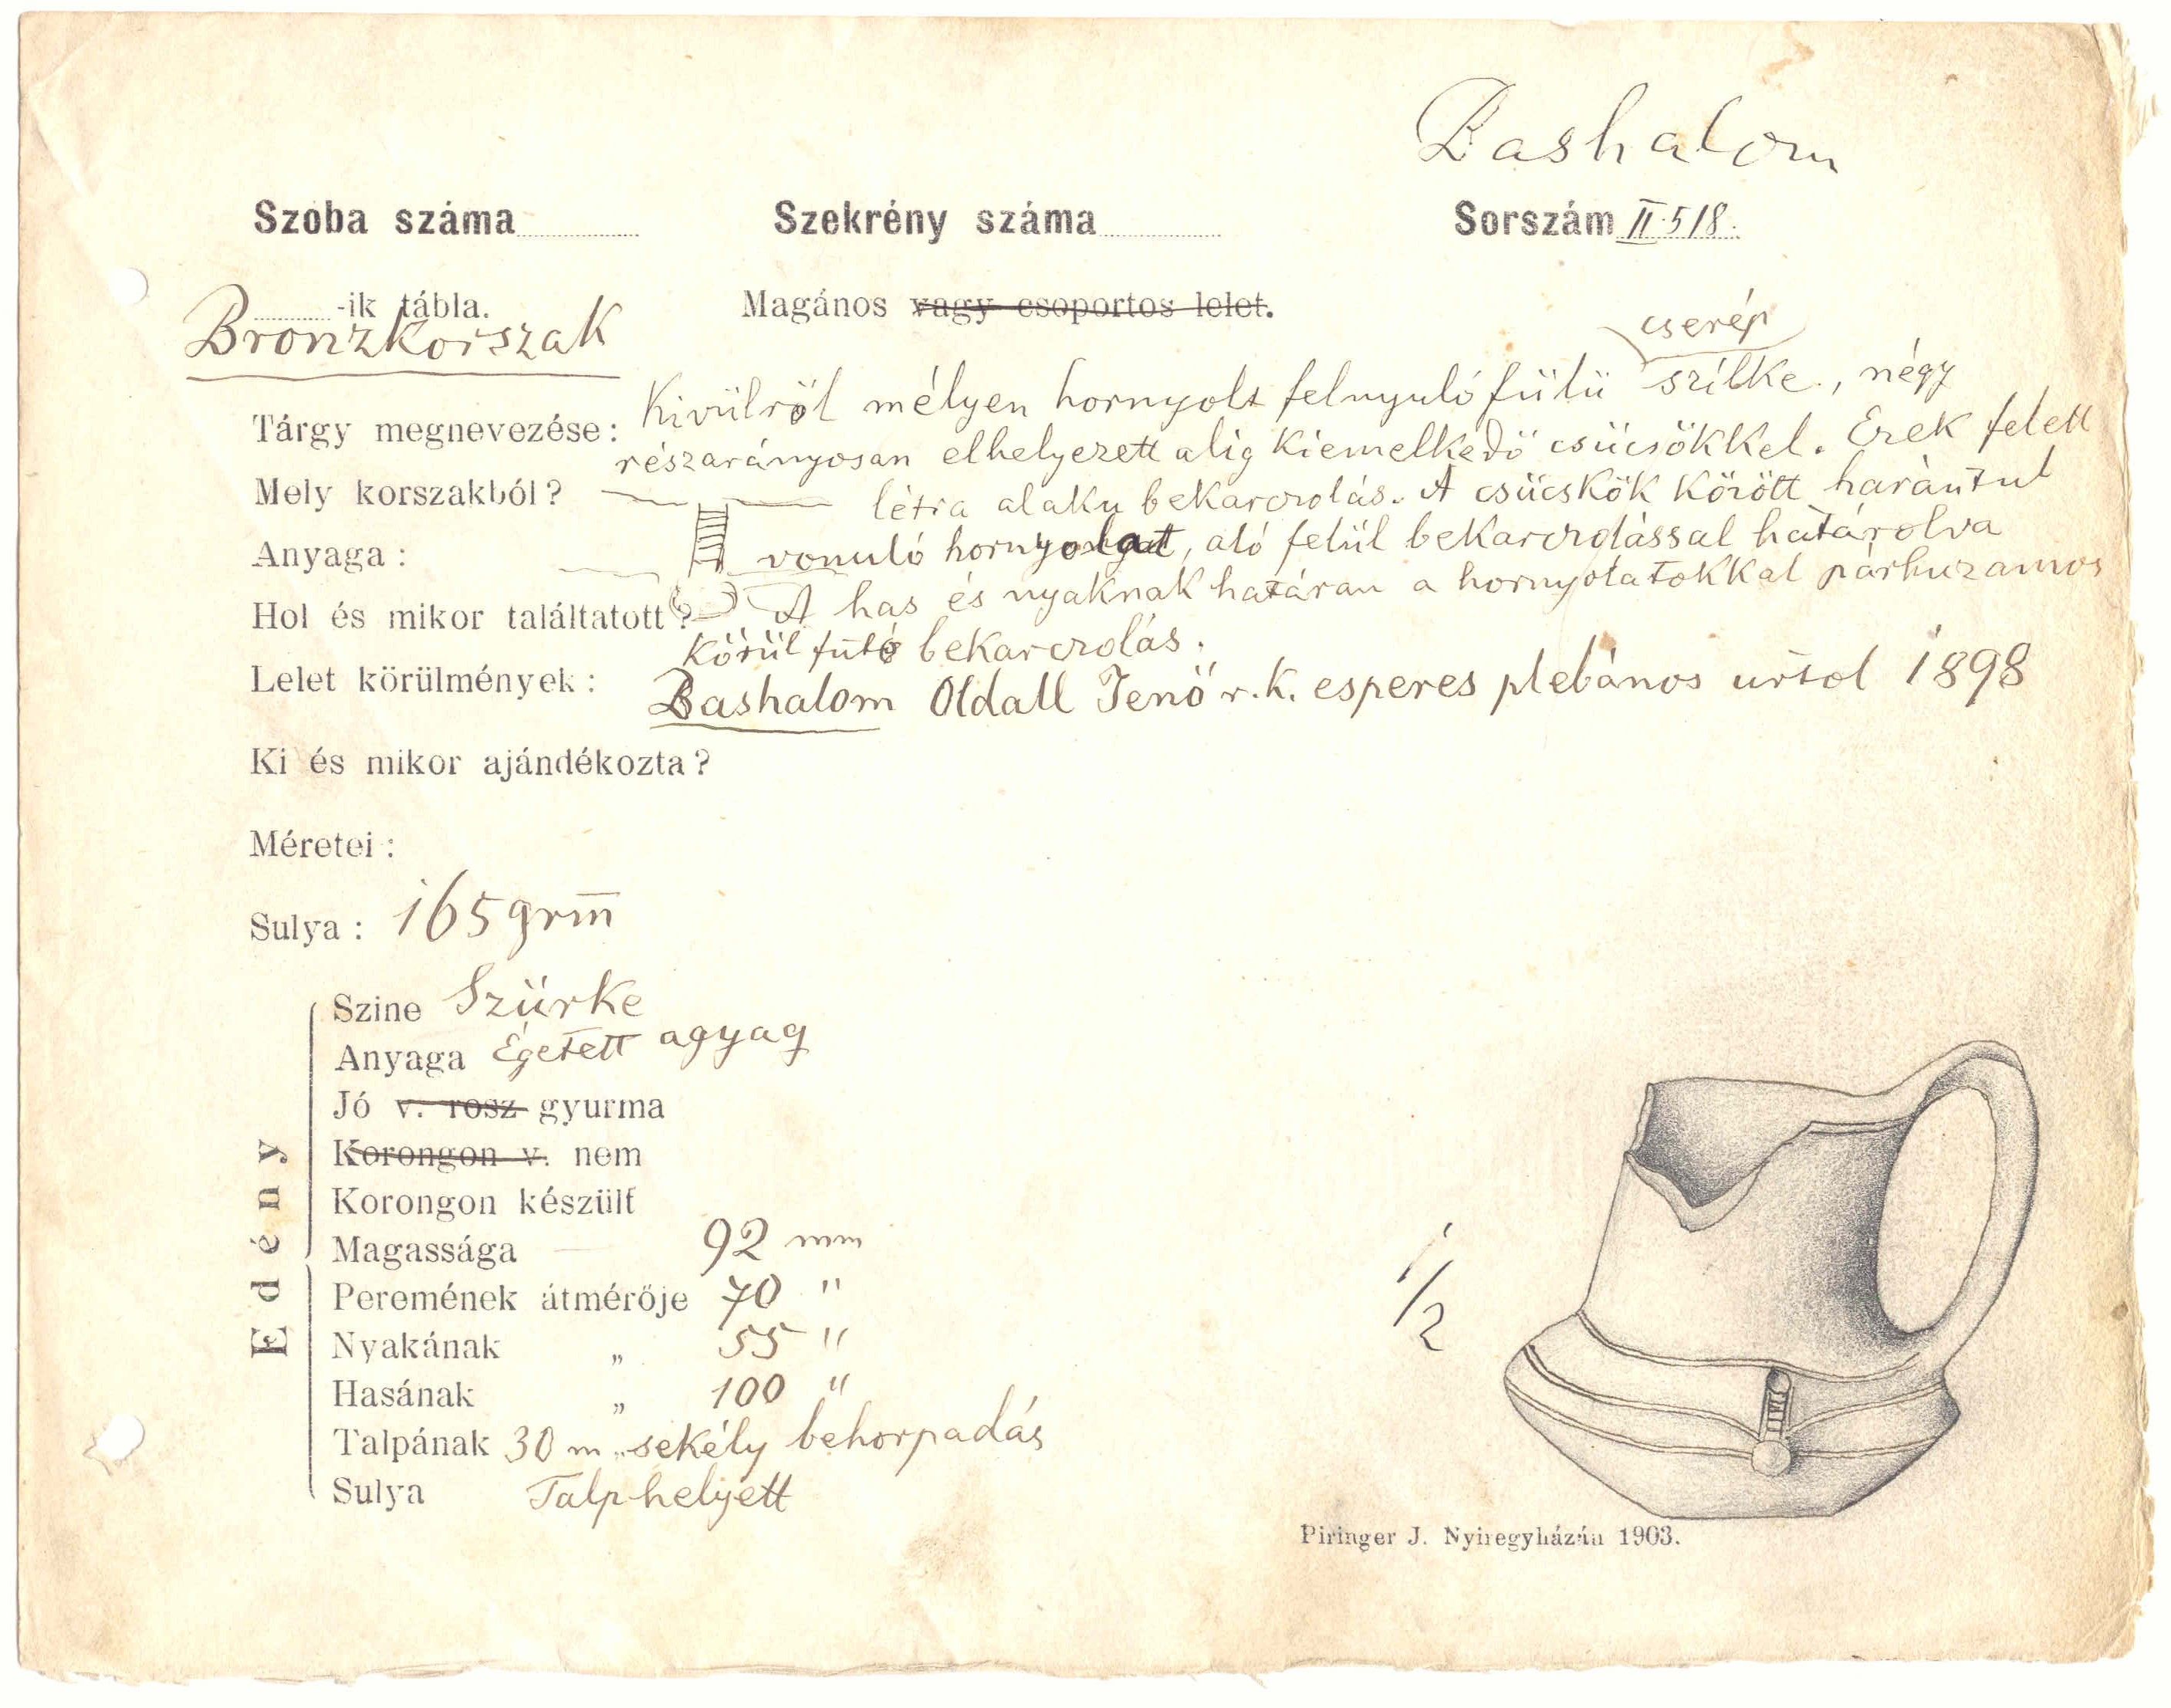 Bashalom
Szoba száma Szekrény száma Sorszám II.518.
-ik tábla. Magános vagy csoportos lelet.
Bronzkorszak
cserép
Tárgy megnevezése: Kivülről mélyen hornyolt felnyuló fülü szilke, négy
részarányosan elhelyezett alig kiemelkedő csücsökkel. Ezek felett
Mely korszakból? létra alaku bekarczolás. A csücskök között harántul
Anyaga: vonuló hornyolat, aló felül bekarczolással határolva
Hol és mikor találtatott? A has és nyaknak határan a hornyolatokkal párhuzamos
körül futó bekarczolás.
Lelet körülmények: Bashalom Oldall Jenő r.k. esperes plebános urtol 1898
Ki és mikor ajándékozta?
Méretei:
Sulya: 165 grm
Edény
Szine Szürke
Anyaga Égetett agyag
Jó v. rosz gyurma
Korongon v. nem
Korongon készült
Magassága 92 mm
Peremének átmérője 70 "
Nyakának „ 55 "
Hasának „ 100 "
Talpának 30 m „ sekély behorpadás
Sulya Talp helyett
1/2
Piringer J. Nyiregyházán 1903.